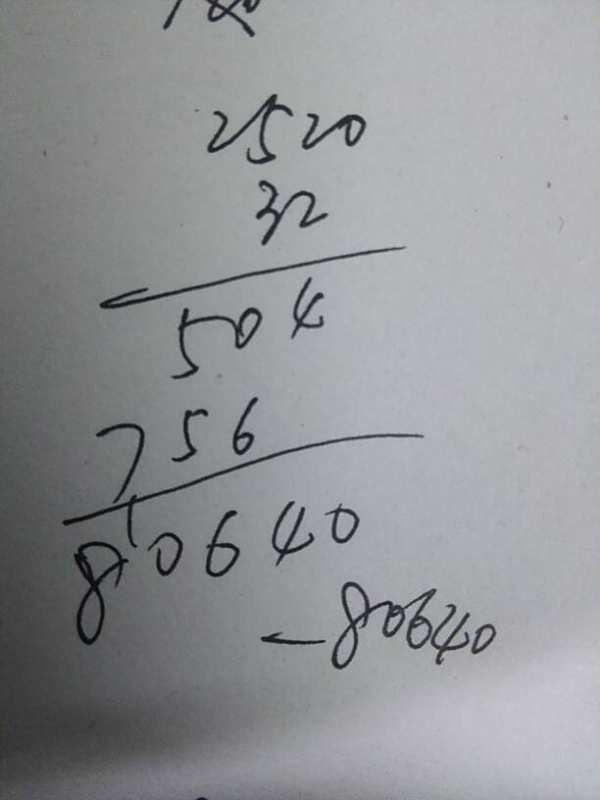 2520
32
504
756
80640
-80640